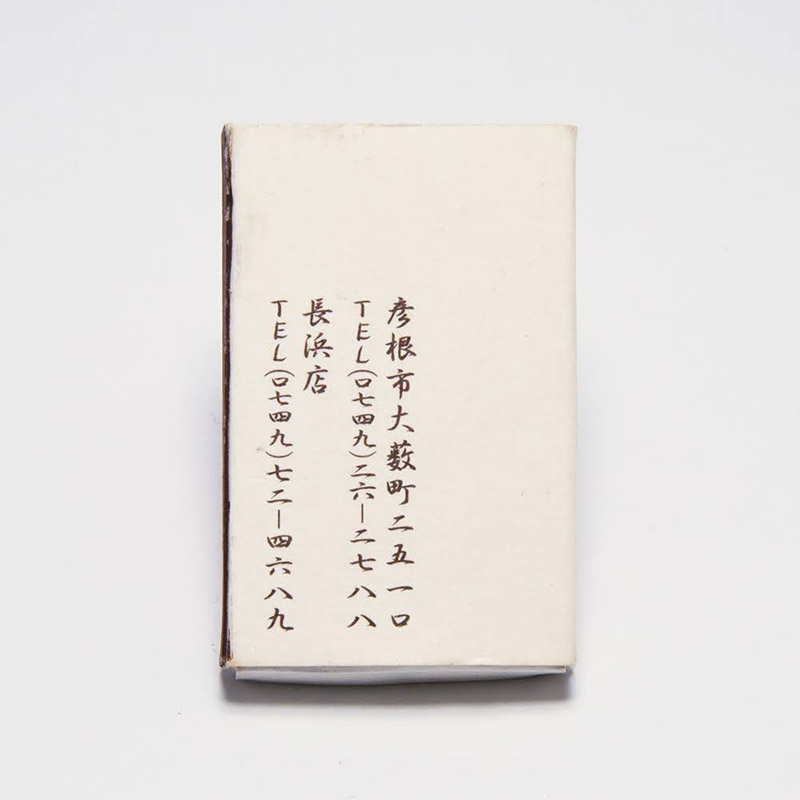 彦根市大薮町二五一〇
TEL(〇七四九)二六ー二七八八
長浜店
TEL(〇七四九)七二ー四六八九